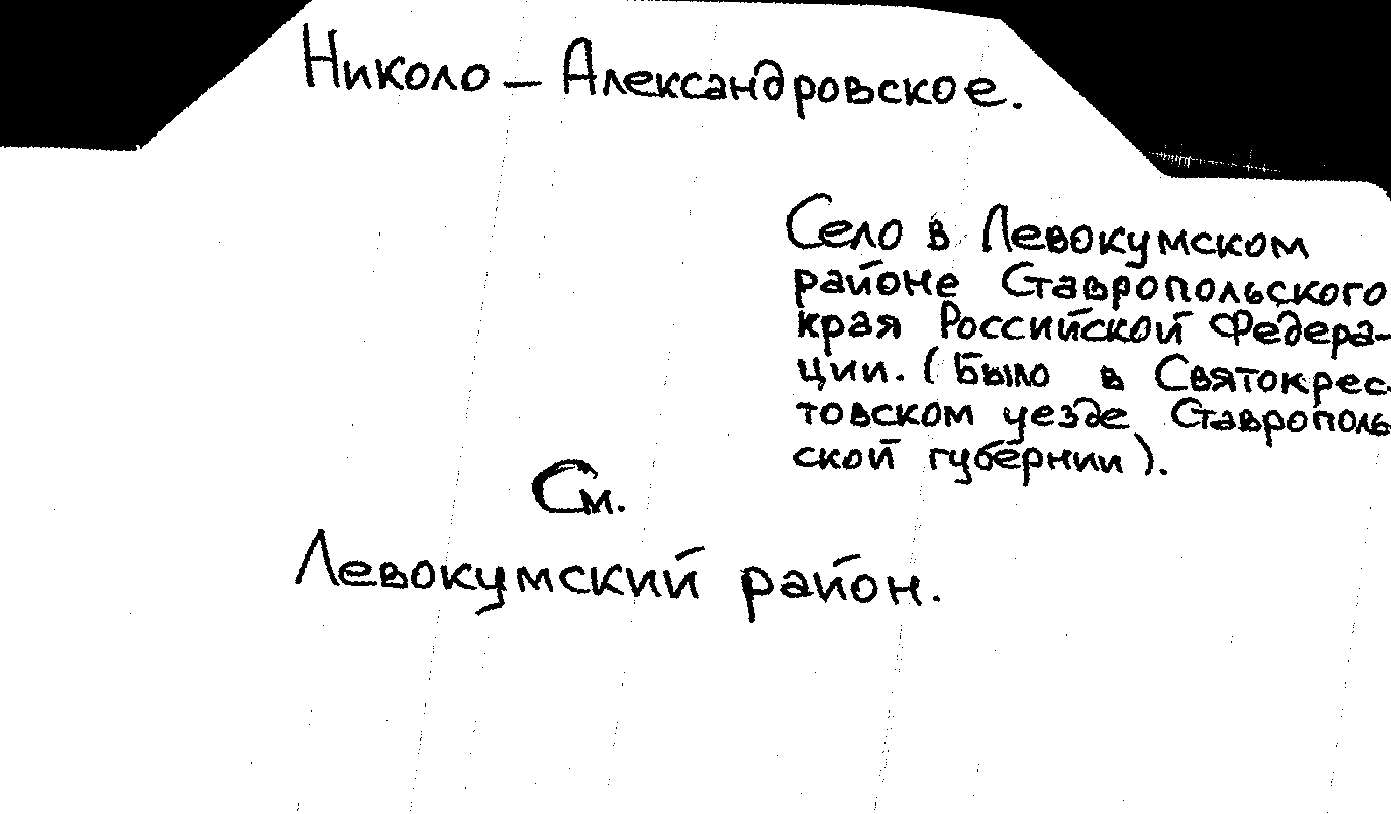 Николо – Александровское.
Село в Левокумском
районе Ставропольского
края Российской Федера-
ции. (Было в Святокрес-
товском уезде Ставрополь
ской губернии).
См.
Левокумский район.